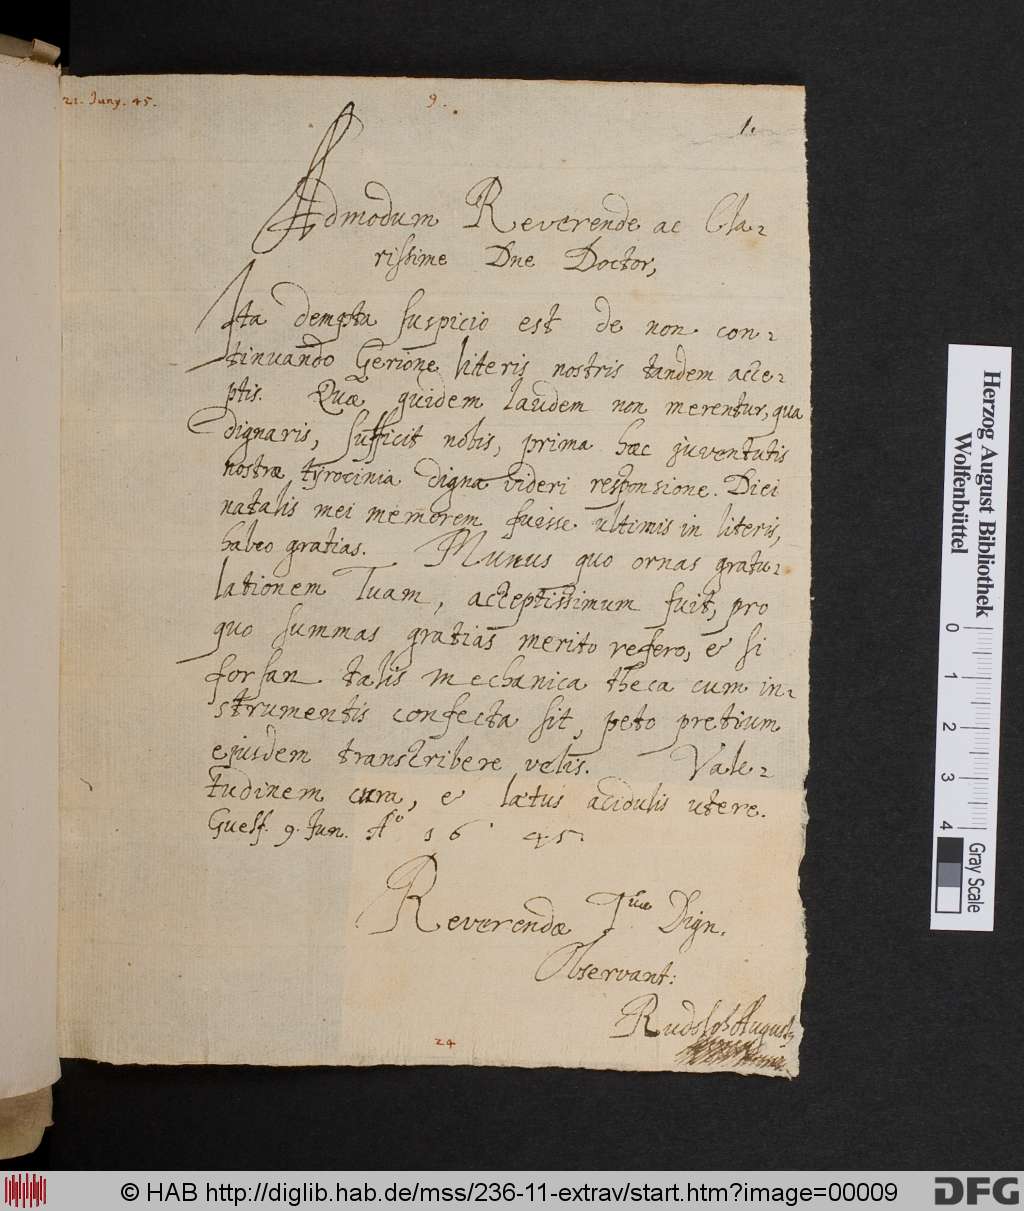 21. Juny. 45.
9.
1.
Admodum Reverende ac Cla-
rissime Dne Doctor,
Ita dempta suspicio est de non con-
tinuando Gerione literis nostris tandem acce-
ptis. Quæ quidem laudem non merentur, qua
dignaris, sufficit nobis, prima hæc juventutis
nostræ tyrocinia digna videri responsione. Diei
natalis mei memorem fuisse ultimis in literis,
habeo gratias. Munus quo ornas gratu-
lationem Tuam, acceptissimum fuit, pro
quo summas gratias merito refero, e si
forsan talis mechanica theca cum in-
strumentis confecta sit, peto pretium
ejusdem transcribere velis. Vale-
tudinem cura, e lætus acidulis utere.
Guelf. 9. Jun. Aº 1645.
Reverendæ Tuæ Dign.
Observant:
Rudolph August
24
Herzog August Bibliothek
Wolfenbüttel
0 1 2 3 4
Gray Scale
© HAB http://diglib.hab.de/mss/236-11-extrav/start.htm?image=00009
DFG